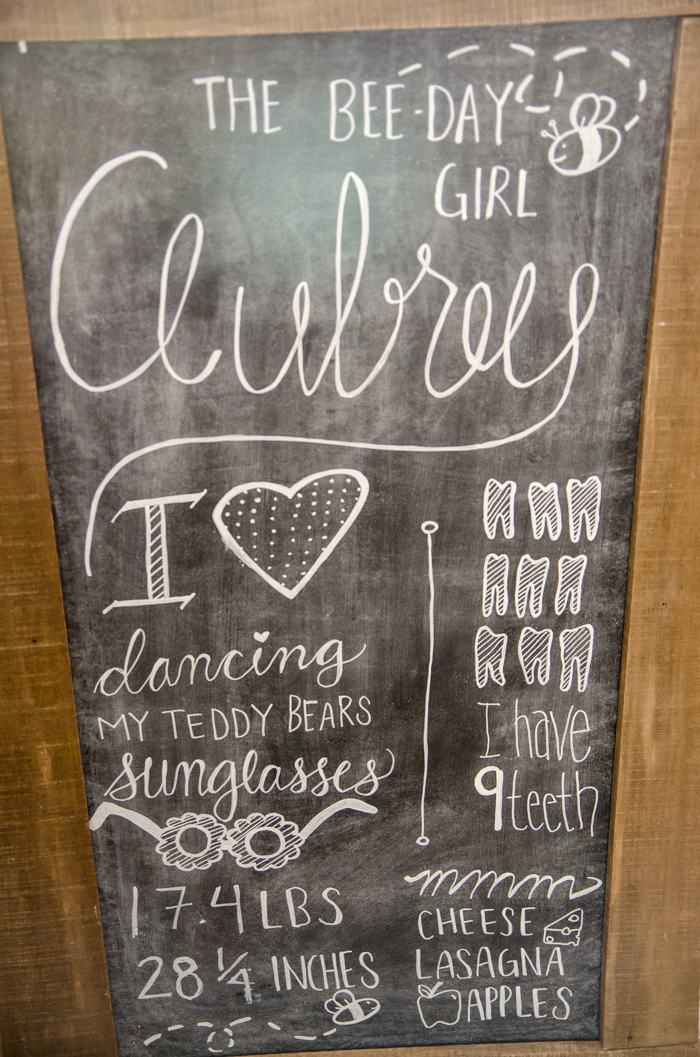 THE BEE-DAY
GIRL
Aubrey
I
dancing
MY TEDDY BEARS
sunglasses
17.4 LBS
28 1/4 INCHES
I have
9 teeth
mmmm
CHEESE
LASAGNA
APPLES